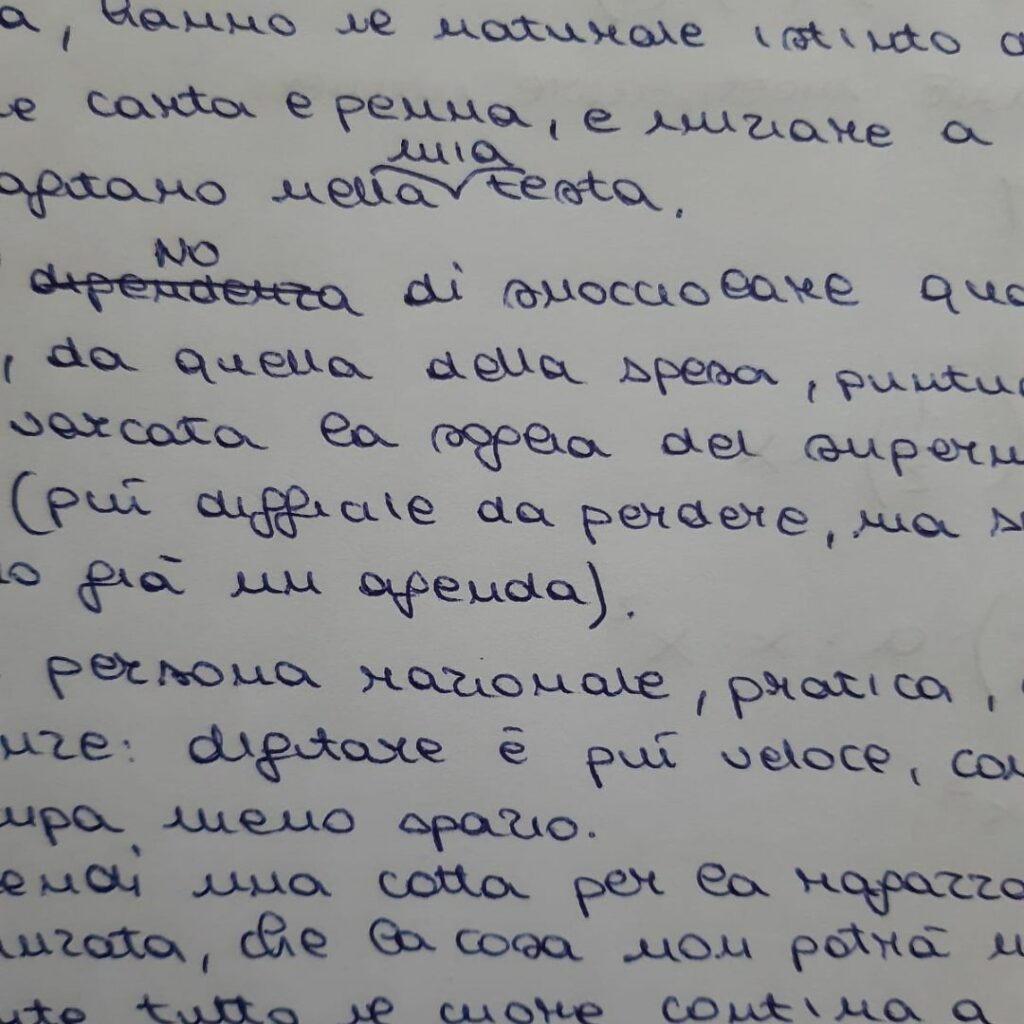 a, hanno il naturale istinto a
e carta e penna, e iniziare a
mia
agitano nella testa.
NO
dipendenza di snocciolare qua
, da quella della spesa, puntu
varcata la soglia del superm
(più difficile da perdere, ma s
o già un agenda).
persona razionale, pratica,
nze: digitare è più veloce, con
upa meno spazio.
endi una cotta per la ragazza
nizata, che la cosa non potrà
nte tutto il cuore continua a